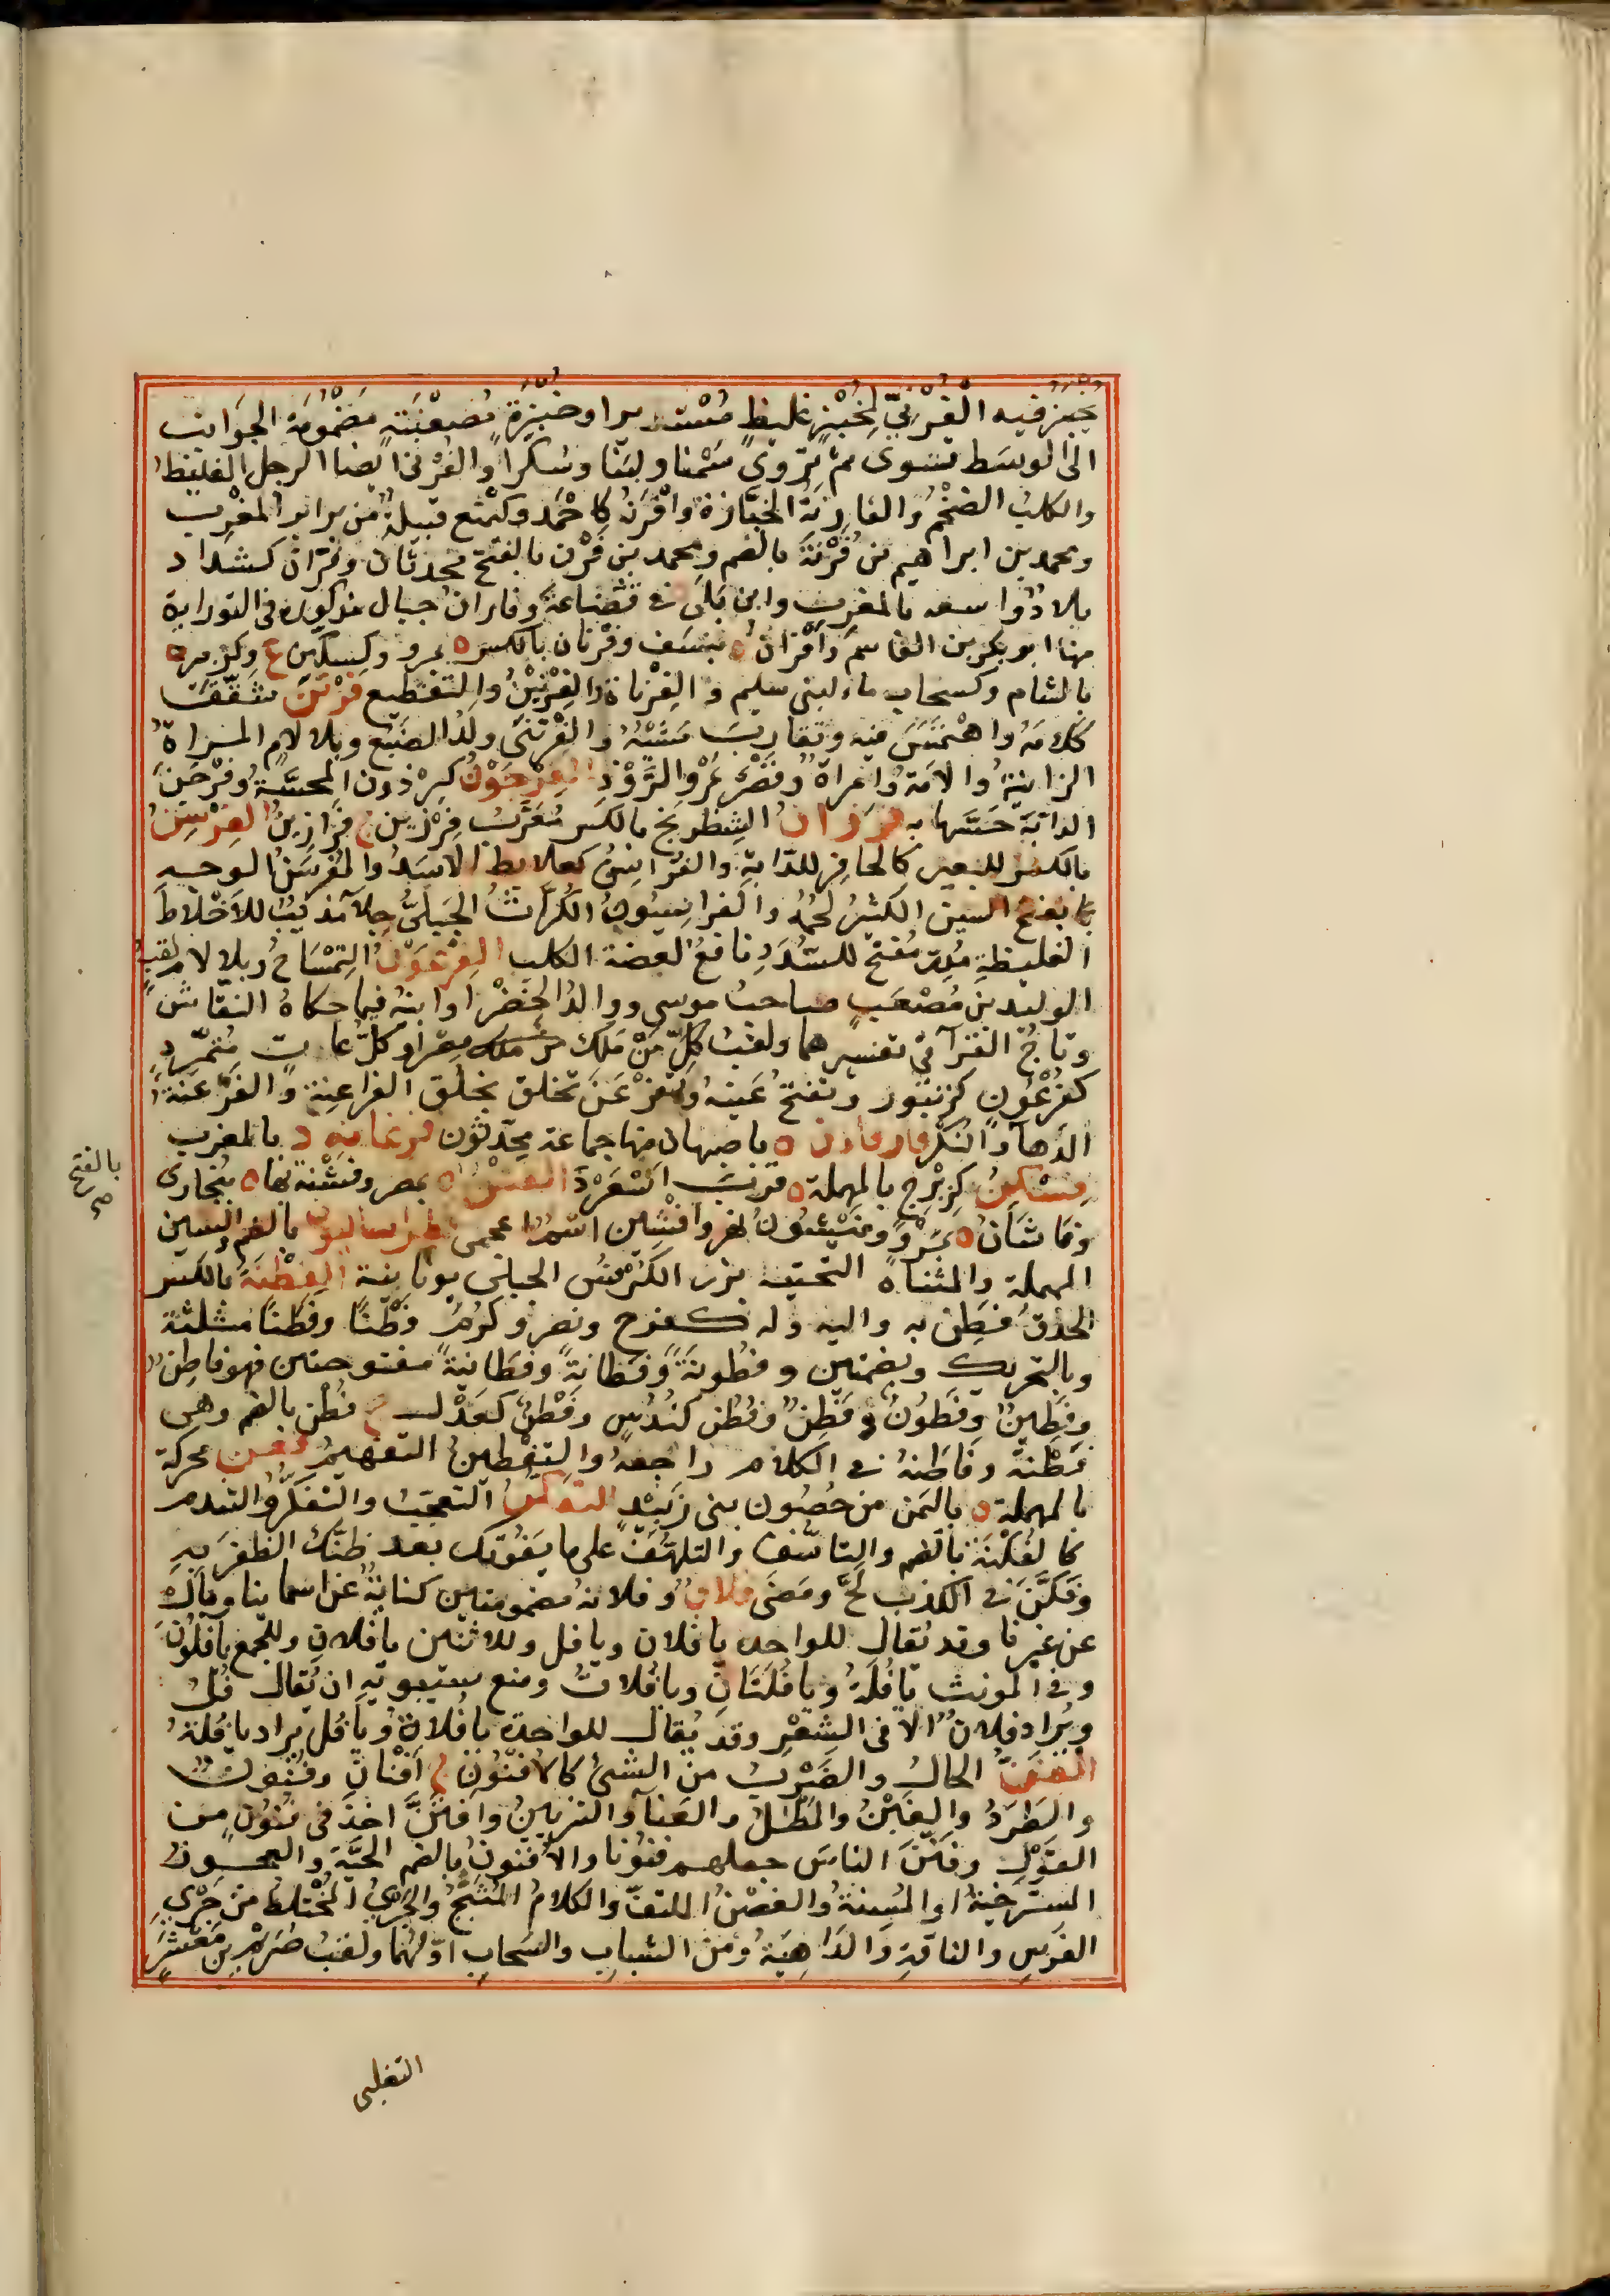 يخبز فيه الفُرْنيّ لخُبْزٍ غليظ مُسْتديراوخبزة مُصعْنَبَة مضمُومَة الجوَانب
الى الوسَط تشوى ثم تروى سَمْنا ولبَنا وسُكّراً والفُرْنى ايضا الرجل الغليظُ
والكلبُ الضخْمُ والفَارِنَةُ الخبَّازة وَافْرَنُ كاحْمَد وكيمْنع قبيلةٌ من برابر المغرِب
ومحمد بن ابراهيم بن فُرْنَةَ بالضم ومحمد بن فَرْن بالفتح محدثان وفَرّانُ كشدا د
بلادٌ واسعه بالمغرب وابن بَلىّ فى قُضَاعةَ وفاران جبال مذكورة فى التوراية
منها ابو بكر بن القاسم وَافْرَانُ ة بنسَف وفرْنان بالكسر ة بمرو وكسِكّين ع وكزبير ة
بالشام وكسحاب ماء لبنى سليم و الفِرْناة والفِرْنَيْنُ والتقطيع فَرْتَنَ شَقّقَ
كلامَهُ واهْتَمَسَ فيه وتقارب مَشْيُهُ والفَرْتَنَى ولدُ الضبُع وبلا لام المـراةُ
الزانيةُ والامَةُ وامراة وقَصْر بمَرْو الرَّوْذِ الفِرْجَوْنُ كبِرْذون المحسَّةُ وفَرْجَنَ
الدابّة حَسّها به فرزانُ الشِطرنج بالكسر مُعَرّب فِرْزين ج فَرَازِينُ الفِرْسِنُ
بالكسر للبعير كالحافِر للدّابة والفُرَاسِنُ كعلابط الاسَدُ والمُفَرسَنُ الوجـه
بفتح السين الكثيرُ لحمُه والفراسيونُ الكُرّاثُ الجبَلىُّ جِلآ مُذيبٌ للأخْلاط
الغليظةِ مُدِرّ مُفتّحٌ للسُّدَدِ نافعٌ لعضة الكلب الفِرْعَوْنُ التِمْسَاحُ وبلا لام لقبُ
الوليد بن مُصْعَبٍ صاحبُ موسى ووالدُ الخَضْر اوابنهُ فيما حكاهُ النقّاش
وتاجُ القرّآء فى تفسيرهما ولقبُ كلّ مَن مَلك مِصْراو كلُّ عاتٍ مُتمرّدٍ
كفُرْعُونٍ كزنبُور وتفتحُ عَينه وتَفَرْعَنَ تخلق بخلق الفراعِنة والفَرْعَنَةُ
الدَهآء والنُكْر فارفان ة باصبهان منها جماعة محدّثون فرغانه د بالمغرب
فِسْكِنُ كزِبْرِج بالمهملة ة قربَ اَسْعَرْدَ الفشْنُ ة بمصر وفشْنة بها ة ببُخارى
وفاشَانُ ة بمَرْوَ وفَيْشُونُ نهر وافْشِين اسْمٌ اعجمىّ فطراساليون بالضم والسين
المهملة والمثناة التحتيه بزر الكرفس الجبلى يونانية الفِطْنَةُ بالكسر
الحذق فطِن به واليه وله كفرح ونصر وكَرُمَ فِطْناً وفطَناً مثلثة
وبالتحريك وبضمتين وفطونَةً وفَطانةً وفطَانيةً مفتوحتين فهو فاطِنٌ
وفَطِينٌ وفَطونٌ وفطِنٌ وفَطُن كنَدُسٍ وفَطْنٌ كعَدْلـ ج فُطْن بالضم وهى
فَطْنةٌ وفَاطَنهُ فى الكلام راجعهُ والتفْطينُ التفهيم فعن محركة
بالمهملة ة باليَمن من حُصُون بنى زَبِيْد التفكّنُ التعجّبُ والتفكّر والتندم
كالفُكْنَة بالضم والتاسّف والتلهّف على ما يَفُوتك بعد ظنَّك الظفَر بهِ
وفَكَنَ فى الكذب لَجَّ ومَضَى فلانٌ وفلانةُ مضمومتين كنايةٌ عن اسمائنا وباَل
عن غيرنا وقد يُقال للواحد يا فلان ويا فل وللاثنين يا فلانِ وللجمع يا فلُونَ
وفى المونث يا فُلَةُ ويا فُلَتَانِ ويا فُلاتُ ومنع سيبويهِ ان يُقال فُلُ
ويُراد فلانٌ الا فى الشِعْرِ وقد يُقال للواحدة يا فُلاَةُ ويا فُل يراد يا فُلَةُ
الفنَنُّ الحالُ والضَرْبُ منَ الشئ كالاُفنُونِ ج اَفْنانٌ وفُنُونٌ
والطَردُ والغَبْنُ والمَطْلُ والعَنآء والتزيينُ وافْتَنَّ اخذ فى فنُونٍ من
القوْلِ وفَنّنَ الناسَ جعلهم فنُونا والاُفنونُ بالضم الحيَّة والعجـوزُ
المسترخِيةُ اوالمُسنةُ والغصْنُ الملتفّ والكلامُ المُثبجُ والجَرْىُ المُخْتلط من جَرْى
الفرسِ والناقةِ والدَاهِيَةُ ومنَ الشبابِ والسَحابِ اوّلهُما ولقبُ صُرَيْمِ بنِ مَعْشَرٍ
بالفتح
صح
التغلبى